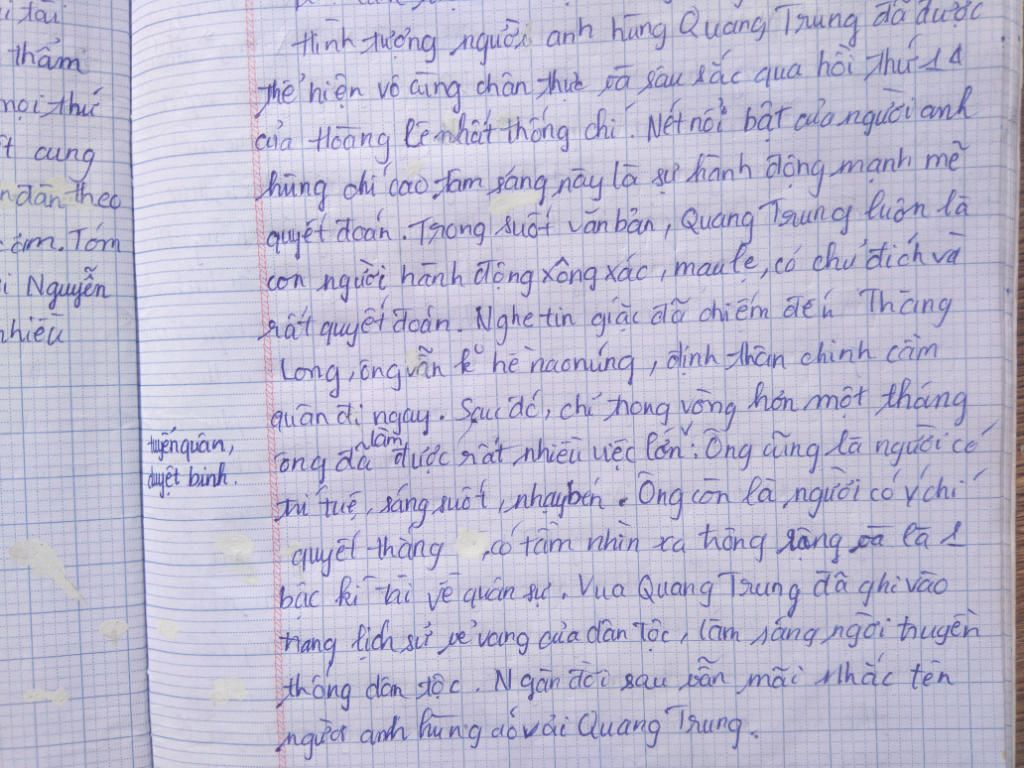 i tài
thẩm
nọi thứ
t cung
n dân theo
cơm. Tóm
i Nguyễn
nhiều
Hình tượng người anh hùng Quang Trung đã được
thể hiện vô cùng chân thực và sâu sắc qua hồi thứ 14
của Hoàng Lê nhất thống chí. Nét nổi bật của người anh
hùng chí cao, tâm sáng này là sự hành động mạnh mẽ
quyết đoán. Trong suốt văn bản, Quang Trung luôn là
con người hành động xông xác, mau lẹ, có chủ đích và
rất quyết đoán. Nghe tin giặc đã chiếm đến Thăng
Long, ông vẫn k hề nao núng, định thân chinh cầm
quân đi ngay. Sau đó, chỉ trong vòng hơn một tháng
ông đã làm được rất nhiều việc lớn: Ông cũng là người có
tuyển quân,
duyệt binh.
trí tuệ, sáng suốt, nhạy bén. Ông còn là người có ý chí
quyết thắng, có tầm nhìn xa trông rộng và là 1
bậc kì tài về quân sự. Vua Quang Trung đã ghi vào
trang lịch sử vẻ vang của dân tộc, làm sáng ngời truyền
thống dân tộc. Ngàn đời sau vẫn mãi nhắc tên
người anh hùng áo vải Quang Trung.